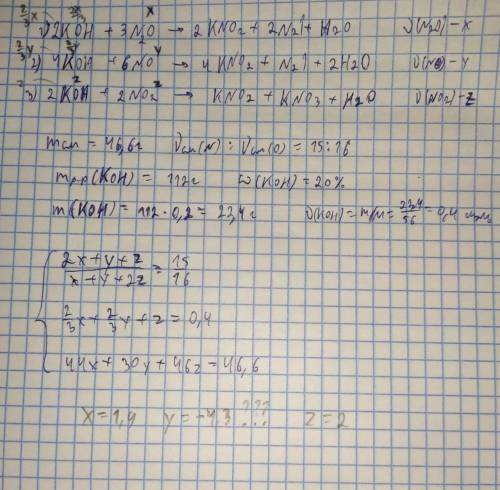 2/3x 2x x
1) 2KOH + 3N₂O → 2KNO₂ + 2N₂↑ + H₂O   ν(N₂O) – x
2/3y y
2) 4KOH + 6NO → 4KNO₂ + N₂↑ + 2H₂O   ν(NO) – y
z z z
3) 2KOH + 2NO₂ → KNO₂ + KNO₃ + H₂O   ν(NO₂) – z
mсм = 46,6г   νсм(N) : νсм(O) = 15:16
mр-р(KOH) = 112г   ω(KOH) = 20%
m(KOH) = 112 · 0,2 = 22,4г   ν(KOH) = m/M = 22,4/56 = 0,4 моль
(2x + y + z)/(x + y + 2z) = 15/16
2/3x + 2/3y + z = 0,4
44x + 30y + 46z = 46,6
x = 1,4   y = –4,3 ???   z = 2